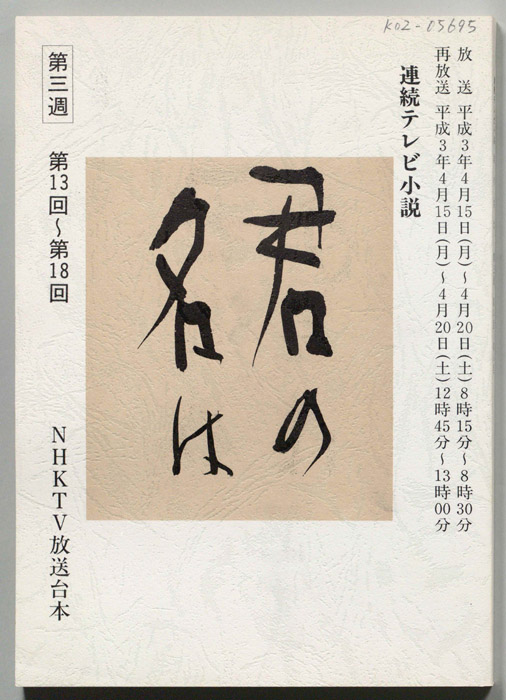 K02-05695
放　送 平成3年4月15日(月)～4月20日(土)8時15分～8時30分
再放送 平成3年4月15日(月)～4月20日(土)12時45分～13時00分
連続テレビ小説
君の
名は
第三週
第13回～第18回
NHKTV放送台本